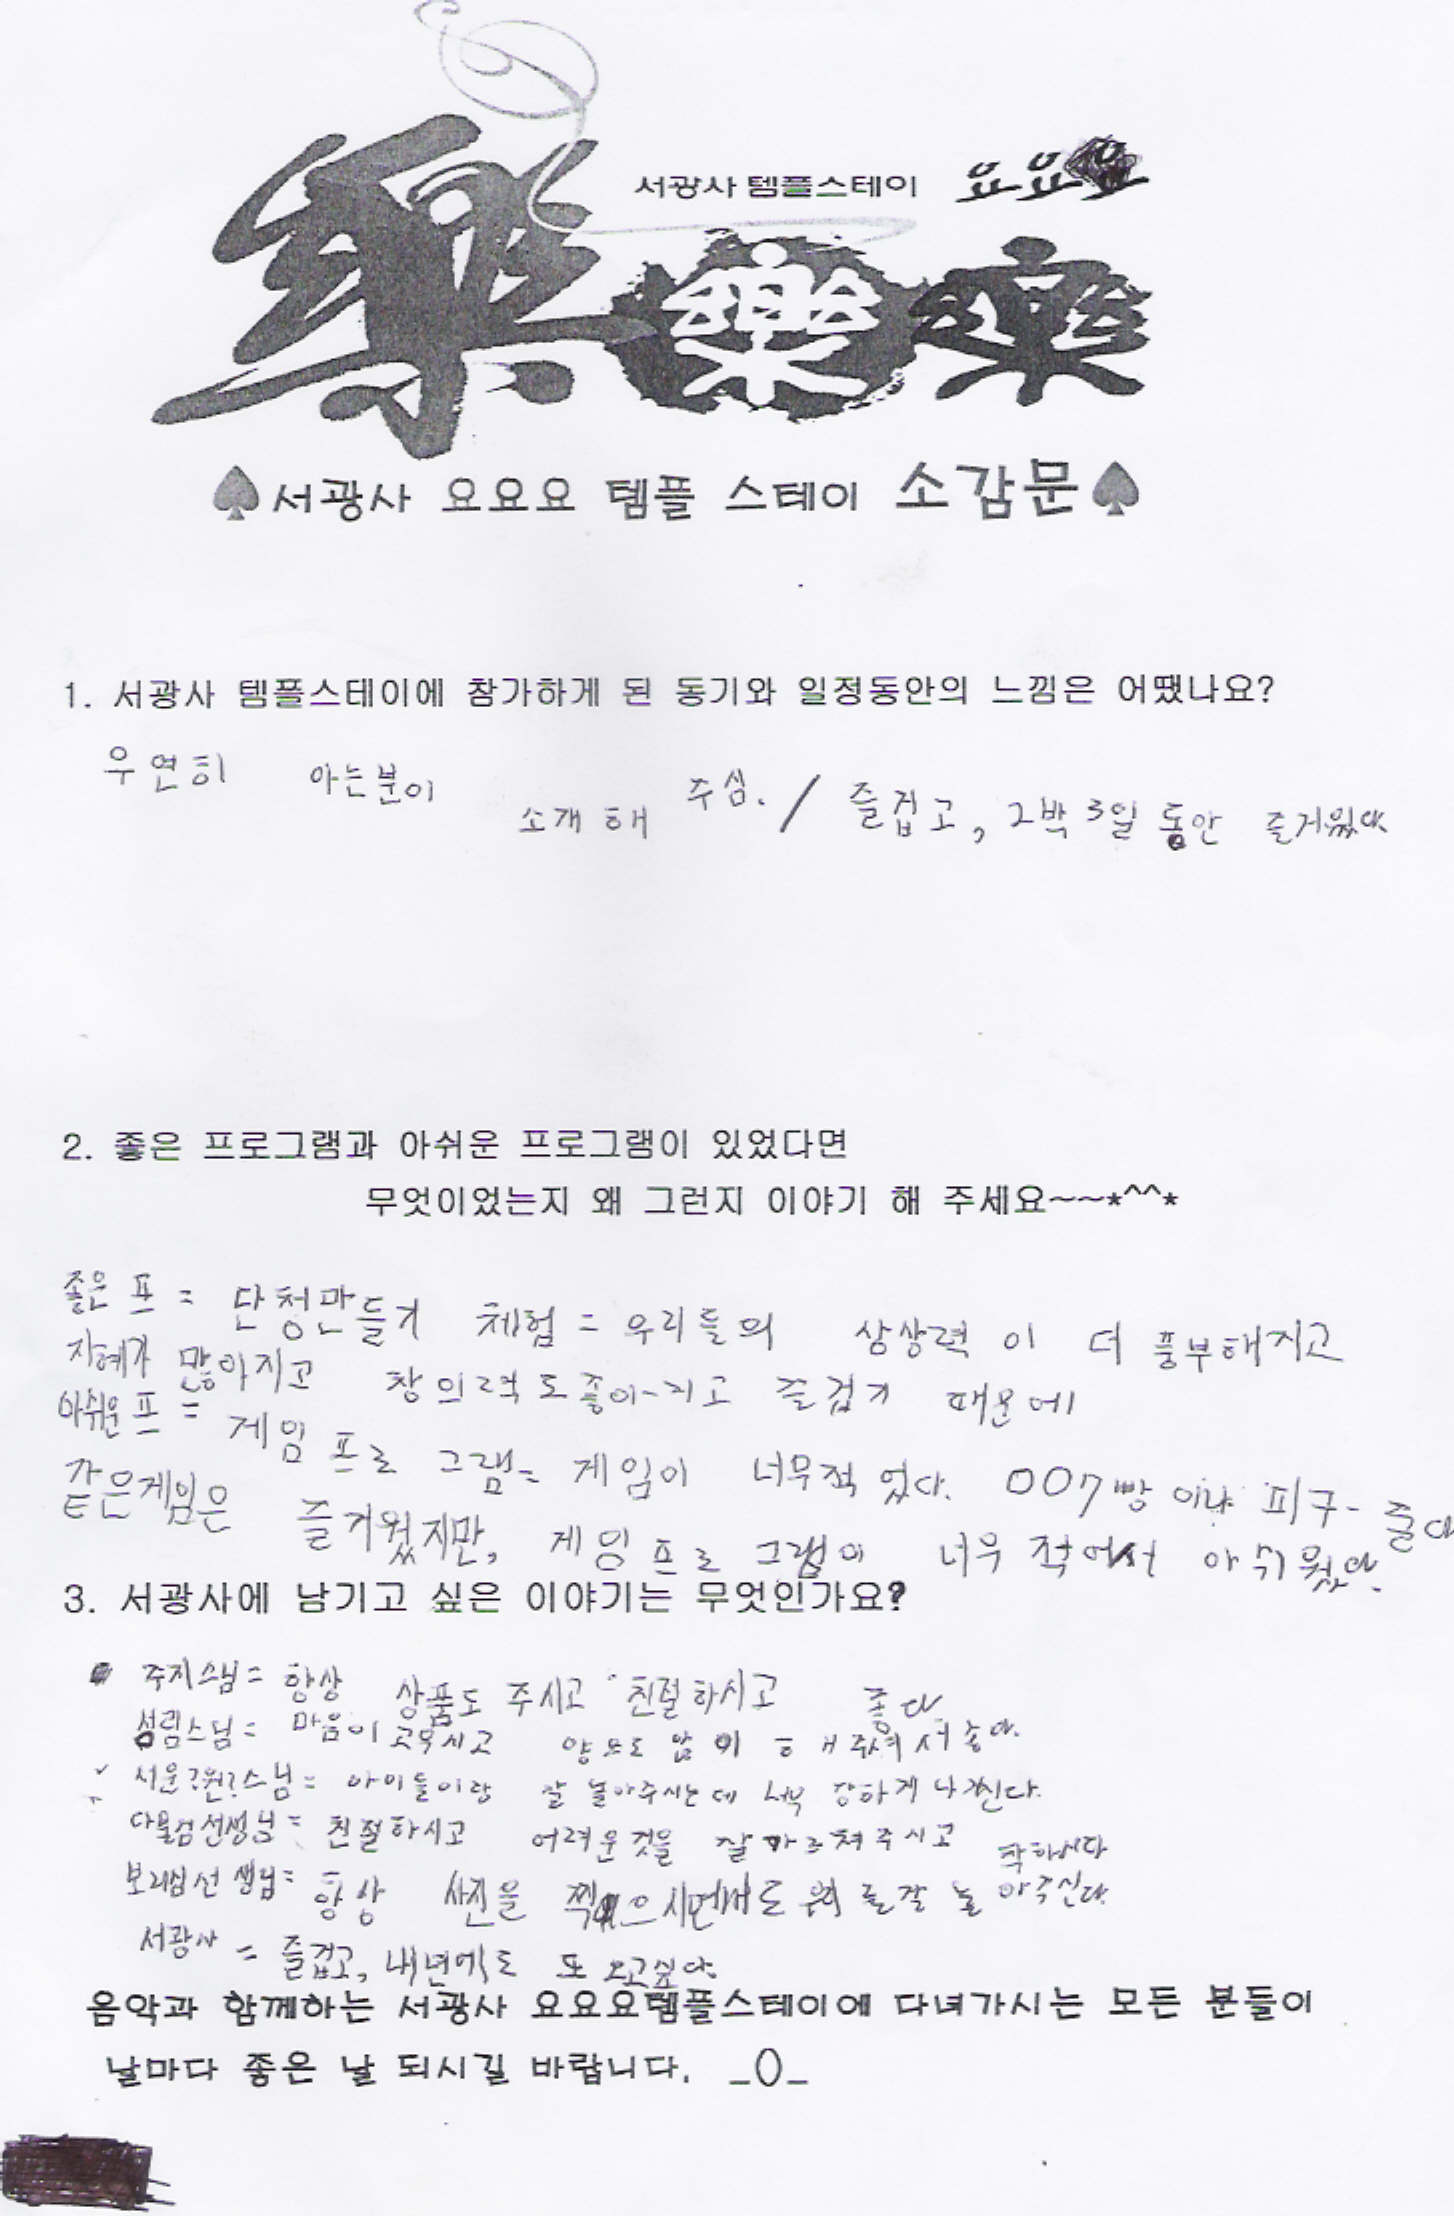 서광사 템플스테이 요요요
樂 樂 樂
♠서광사 요요요 템플 스테이 소감문♠
1. 서광사 템플스테이에 참가하게 된 동기와 일정동안의 느낌은 어땠나요?
우연히 아는분이 소개해 주심. / 즐겁고, 2박 3일 동안 즐거웠다.
2. 좋은 프로그램과 아쉬운 프로그램이 있었다면
무엇이었는지 왜 그런지 이야기 해 주세요~~*^^*
좋은 프 = 단청만들기 체험 = 우리들의 상상력이 더 풍부해지고
지혜가 많아지고 창의력도 좋아지고 즐겁기 때문에
아쉬운 프 = 게임 프로그램 = 게임이 너무 적었다. 007빵 이나 피구-
같은게임은 즐거웠지만, 게임 프로그램이 너무 적어서 아쉬웠다.
3. 서광사에 남기고 싶은 이야기는 무엇인가요?
주지스님 = 항상 상품도 주시고 친절하시고 좋다
성림스님 = 마음이 고우시고 양보도 많이 해주셔서 좋다.
서운?원?스님 = 아이들이랑 잘 놀아주시는데 너무 강하게 나가신다.
선생님 = 친절하시고 어려운것을 잘 가르쳐주시고 착하시다
보리심선생님 = 항상 사진을 찍으시면서도 잘 놀아주신다.
서광사 = 즐겁고, 내년에도 또 오고싶다.
음악과 함께하는 서광사 요요요템플스테이에 다녀가시는 모든 분들이
날마다 좋은 날 되시길 바랍니다. _0_